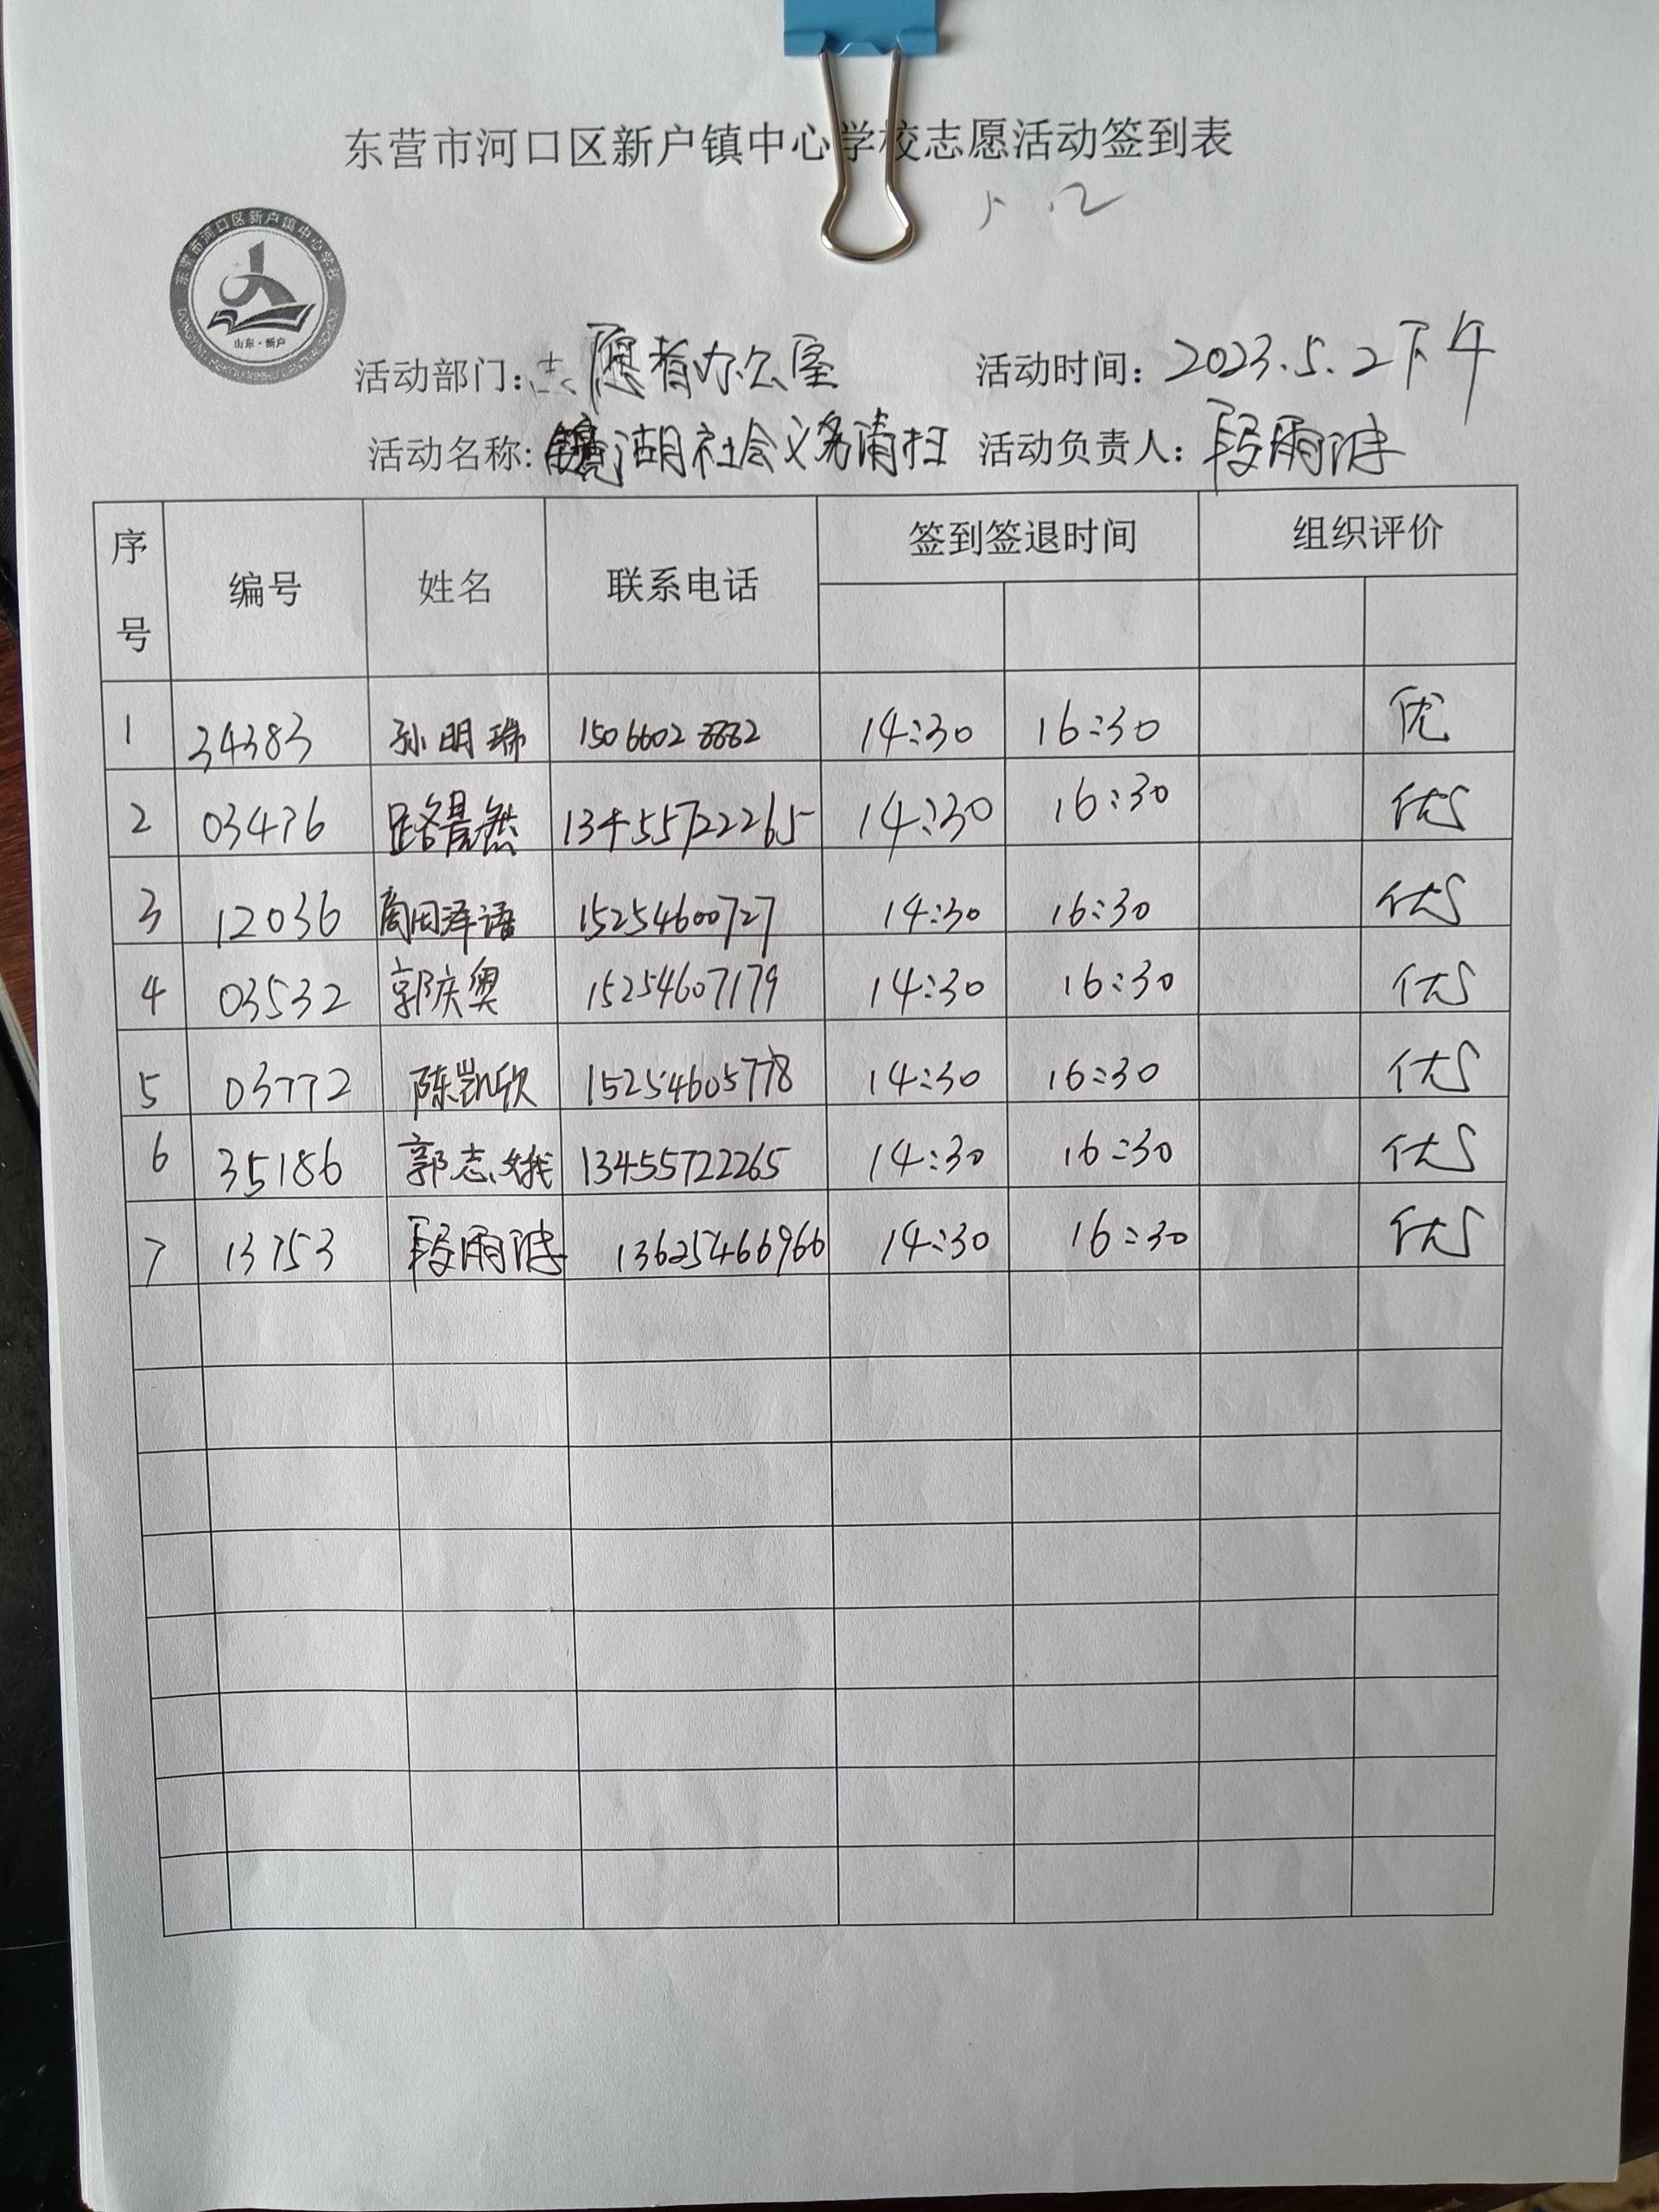 东营市河口区新户镇中心学校志愿活动签到表
东营市河口区新户镇中心学校
山东·新户
活动部门：志愿者办公室 活动时间：2023.5.2下午
活动名称：湖社会义务清扫 活动负责人：段雨
序号 编号 姓名 联系电话 签到签退时间 组织评价
1 34383 孙明瑞 15066028882 14:30 16:30 优
2 03476 路景然 13455722265 14:30 16:30 优
3 12036 周田泽语 15254600727 14:30 16:30 优
4 03532 郭庆奥 15254607179 14:30 16:30 优
5 03772 陈凯欣 15254605778 14:30 16:30 优
6 35186 郭志娥 13455722265 14:30 16:30 优
7 13753 段雨 13625466966 14:30 16:30 优